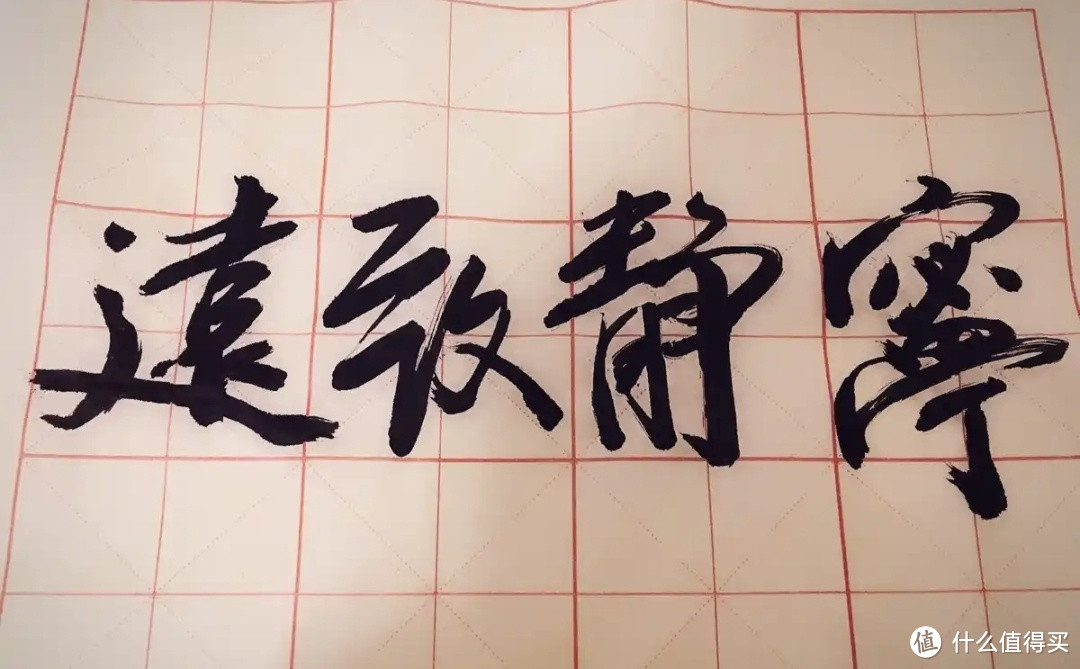 寧靜致遠
值 什么值得买